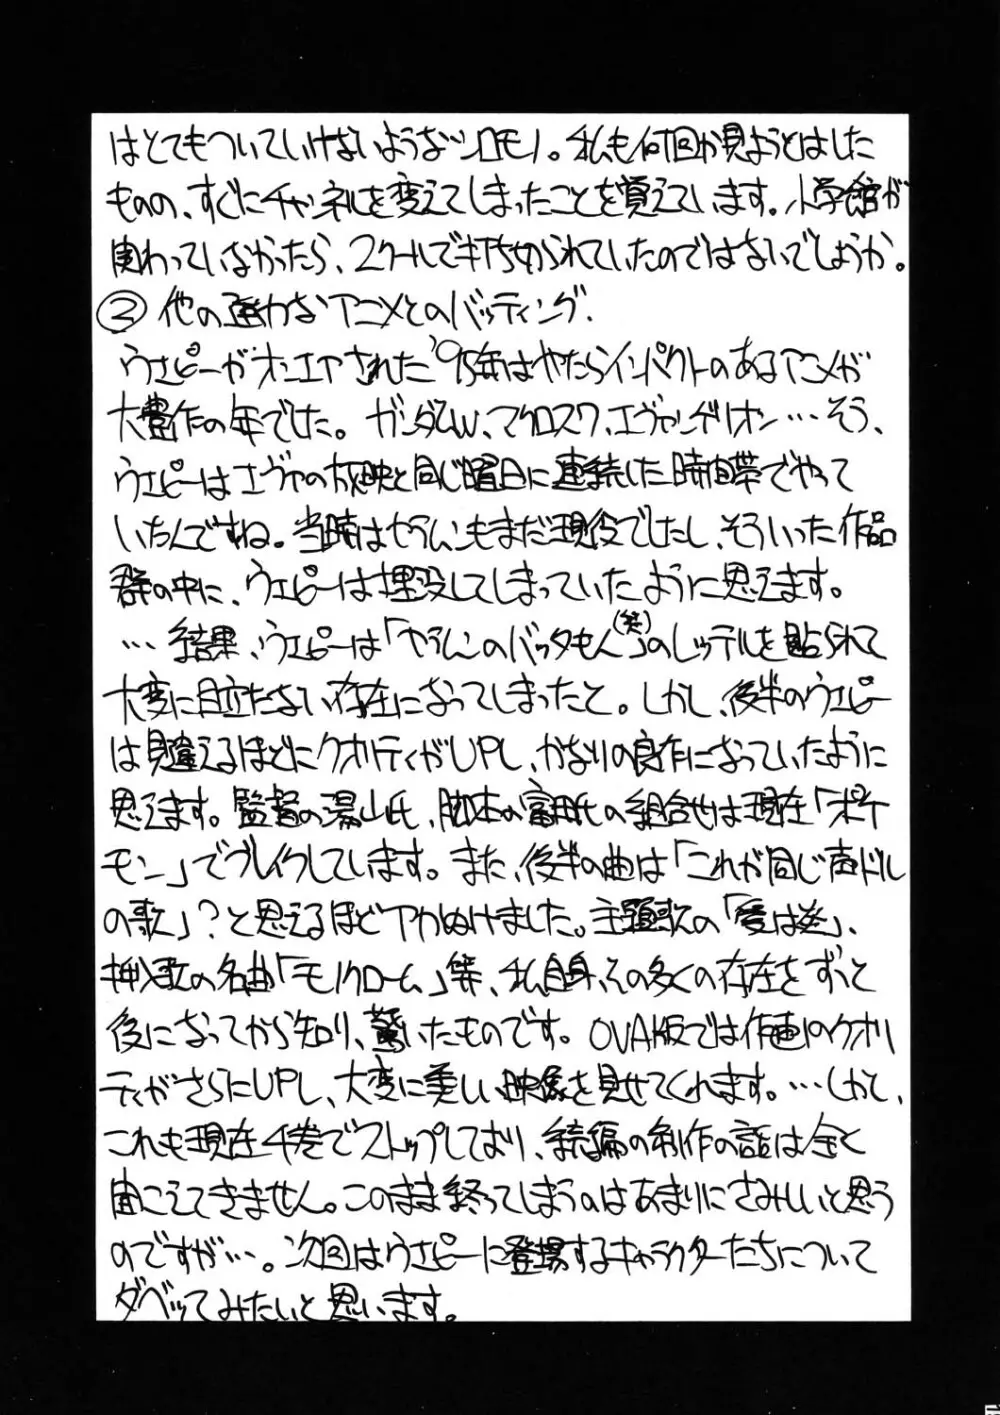 はとてもついていけないようなシロモノ。私も何回か見ようとはした
ものの、すぐにチャンネルを変えてしまったことを覚えています。小学館が
関わっていなかったら、2クールで打ち切られていたのではないでしょうか。
③他の強力なアニメとのバッティング.
ウエピーがオンエアされた'95年はやたらインパクトのあるアニメが
大豊作の年でした。ガンダムW、マクロス7、エヴァンゲリオン…そう、
ウエピーはエヴァの放映と同じ曜日に連続した時間帯でやって
いたんですね。当時はセラムンもまだ現役でしたし、そういった作品
群の中に、ウエピーは埋没してしまっていたように思えます。
…結果、ウエピーは「セラムンのバッタもん(笑)」のレッテルを貼られて
大変に目立たない存在になってしまったと。しかし、後半のウエピー
は見違えるほどにクオリティがUPし、かなりの良作になっていたように
思えます。監督の湯山氏、脚本の富田氏の組合せは現在「ポケ
モン」でブレイクしています。また、後半の曲は「これが同じ声ドル
の歌」?と思えるほどアカぬけました。主題歌の「愛は迷」、
挿入歌の名曲「モノクローム」等、私自身、その多くの存在をずっと
後になってから知り、驚いたものです。OVA版では作画のクオリ
ティがさらにUPし、大変に美しい映像を見せてくれます。…しかし、
これも現在4巻でストップしており、続編の制作の話は全く
聞こえてきません。このまま終ってしまうのはあまりにさみしいと思う
のですが…。次回はウエピーに登場するキャラクターたちについて
ダベってみたいと思います。